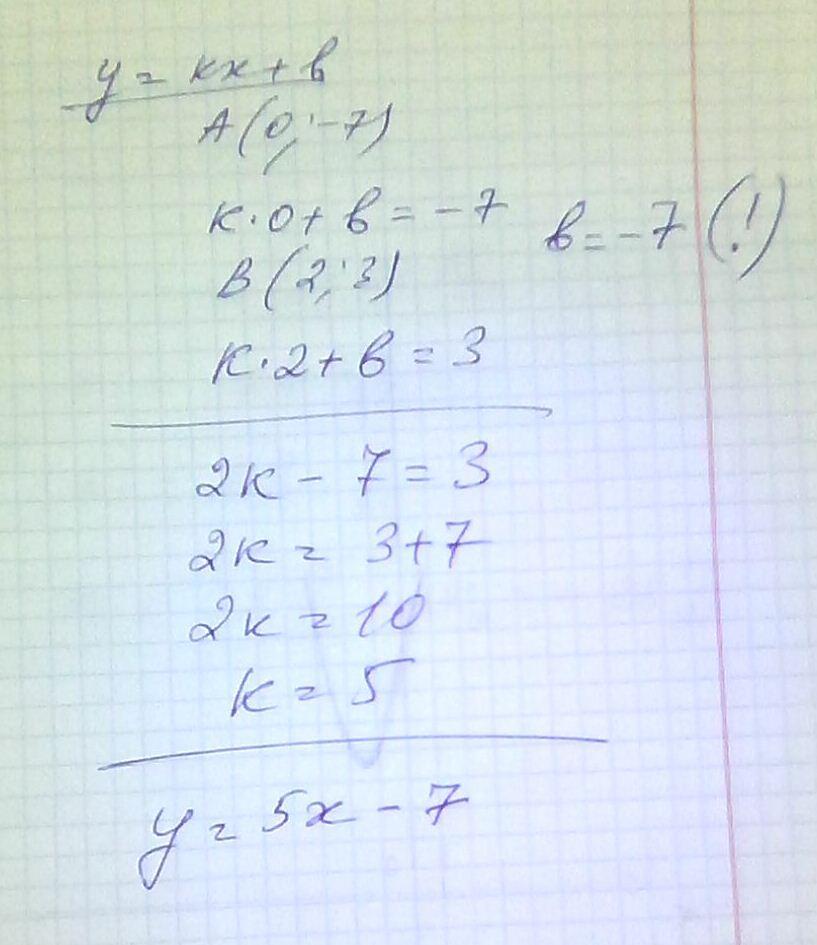 y = kx + b
A(0;-7)
k·0 + b = -7 b = -7 (!)
B(2;3)
k·2 + b = 3
2k - 7 = 3
2k = 3+7
2k = 10
k = 5
y = 5x - 7